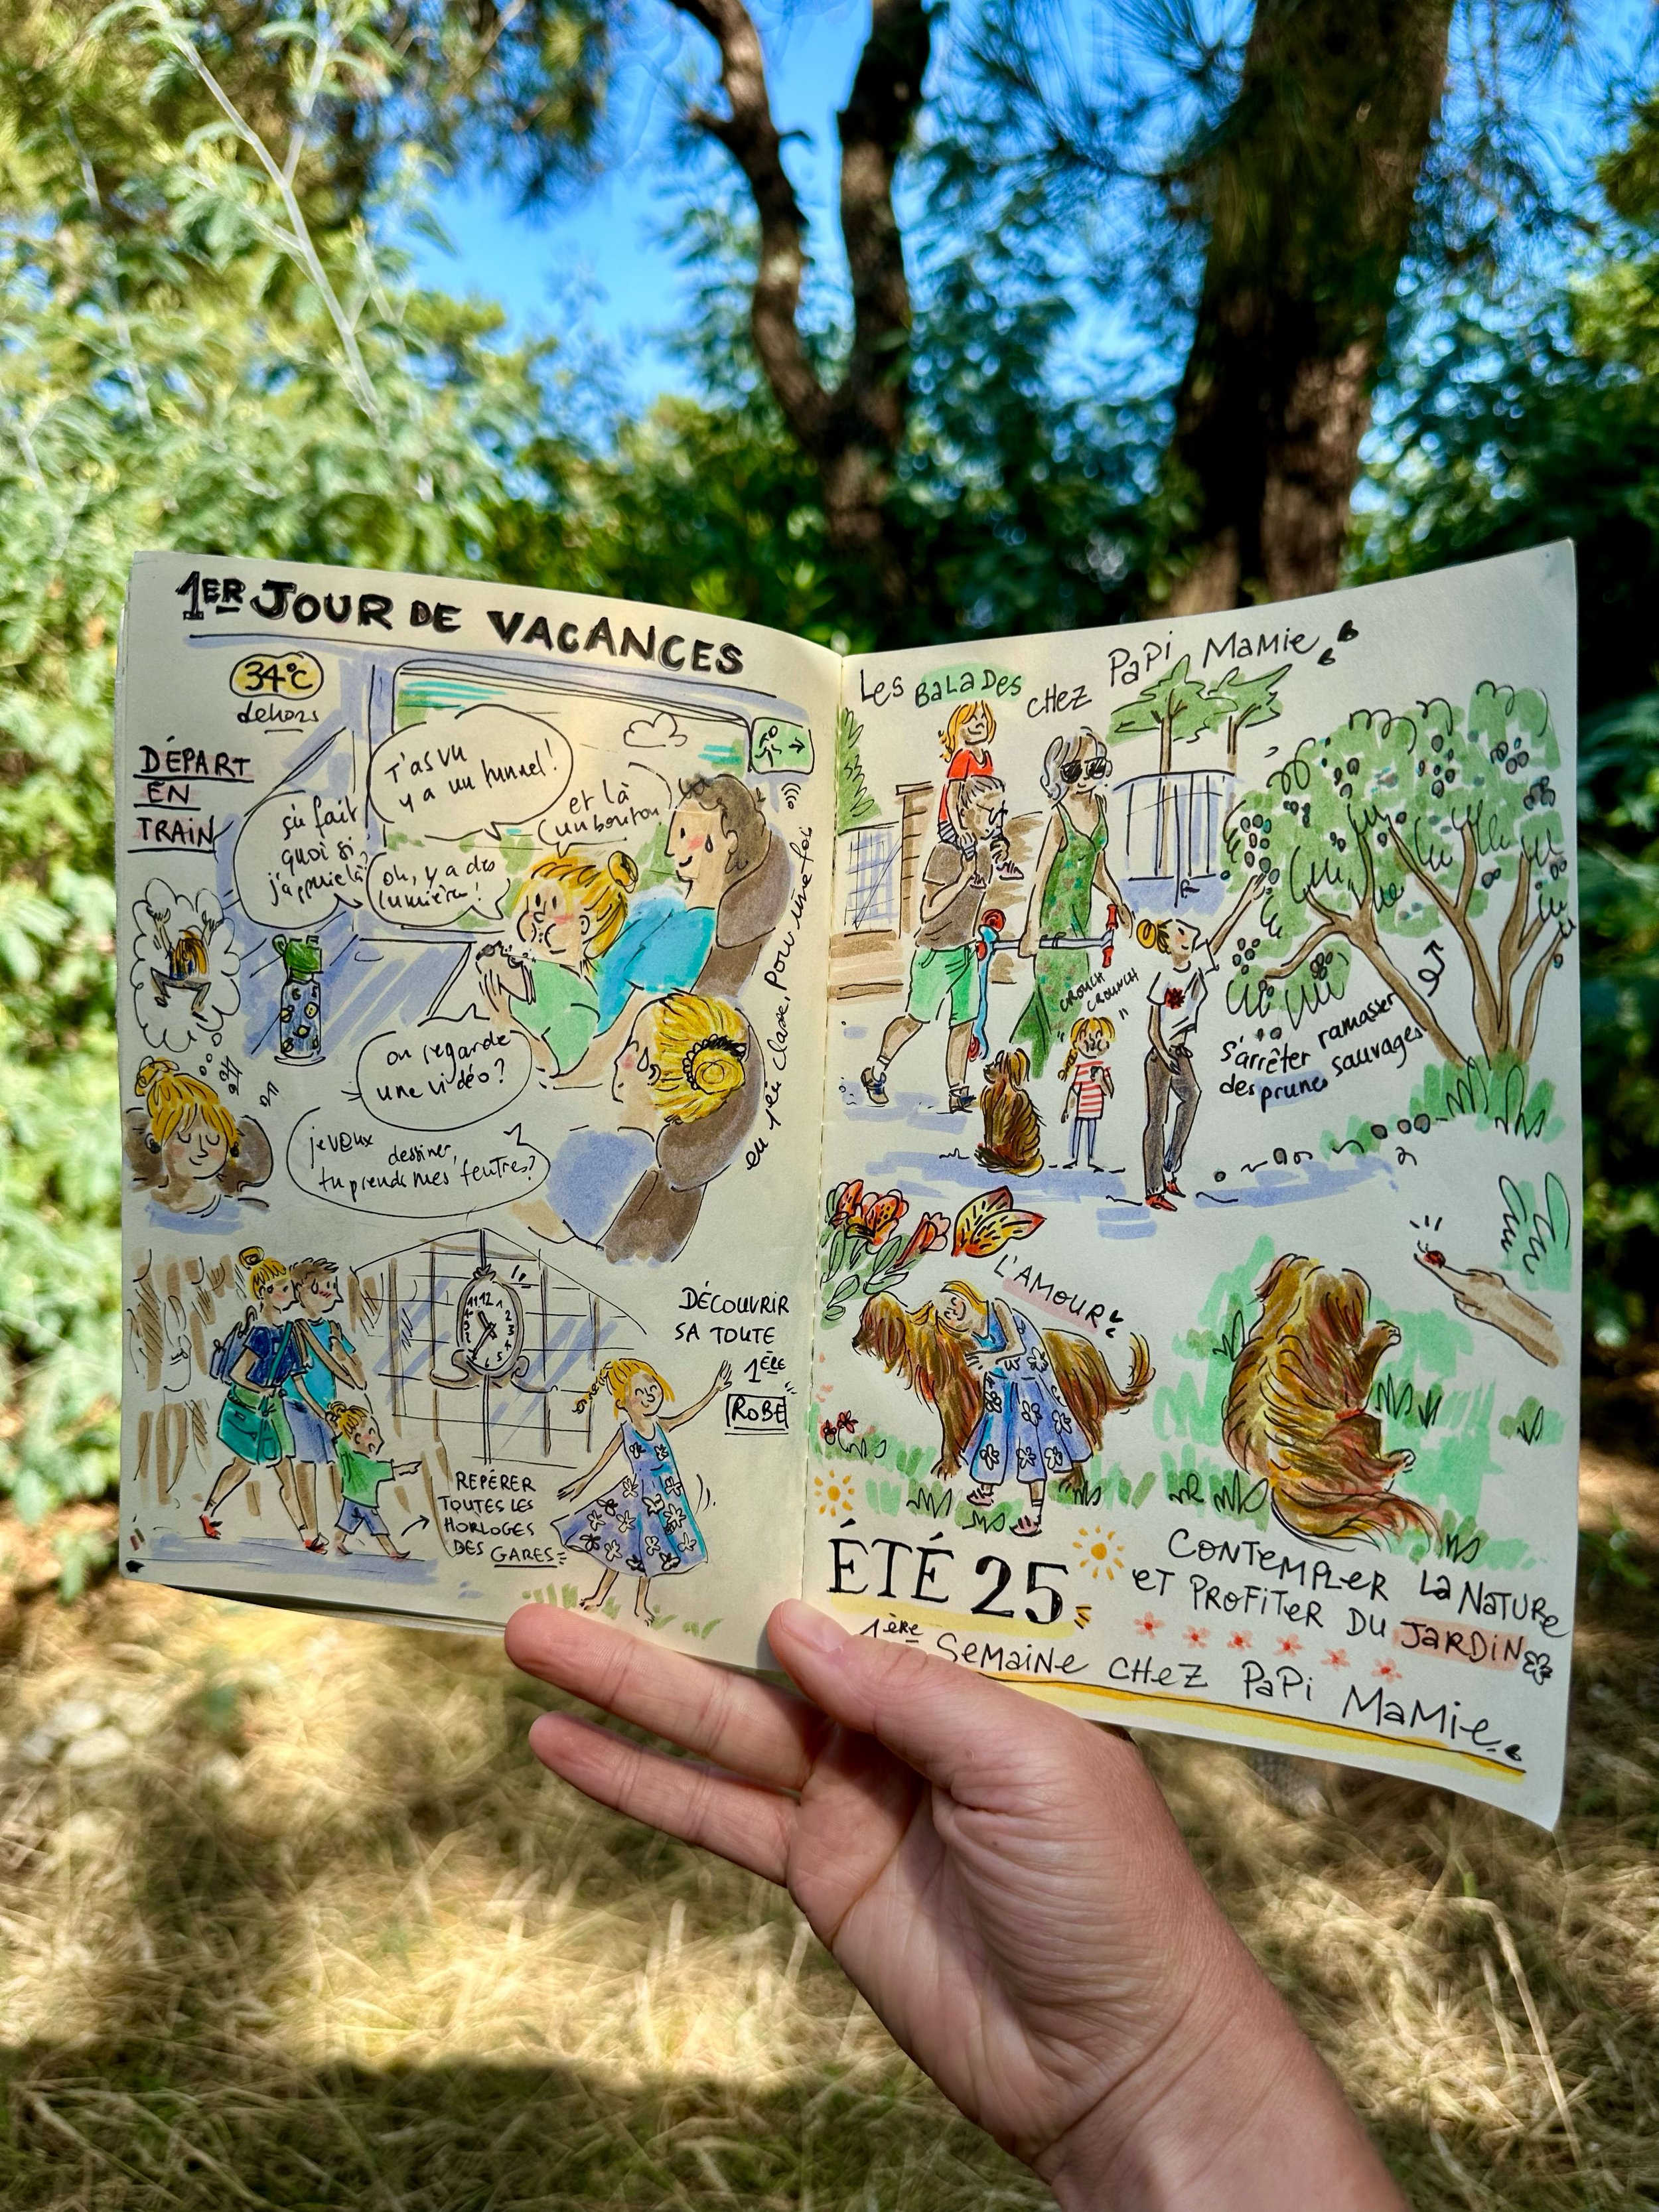 1ER JOUR DE VACANCES
34°C
dehors
DÉPART
EN
TRAIN
T'as vu
y a un tunnel!
et là
un bouton
ça fait
quoi si
j'appuie là?
oh, y a des
lumières!
on regarde
une vidéo?
je veux
dessiner,
tu prends mes feutres?
en 1ère classe, pour une fois
11 12 1
2
3
4
5
REPÉRER
TOUTES LES
HORLOGES
DES GARES
DÉCOUVRIR
SA TOUTE
1ÈRE
ROBE
LES BALADES CHEZ PAPI MAMIE
CROUNCH
CROUNCH
s'arrêter ramasser
des prunes sauvages
L'AMOUR
CONTEMPLER LA NATURE
ET PROFITER DU JARDIN
ÉTÉ 25
1ère SEMAINE CHEZ PAPI MAMIE